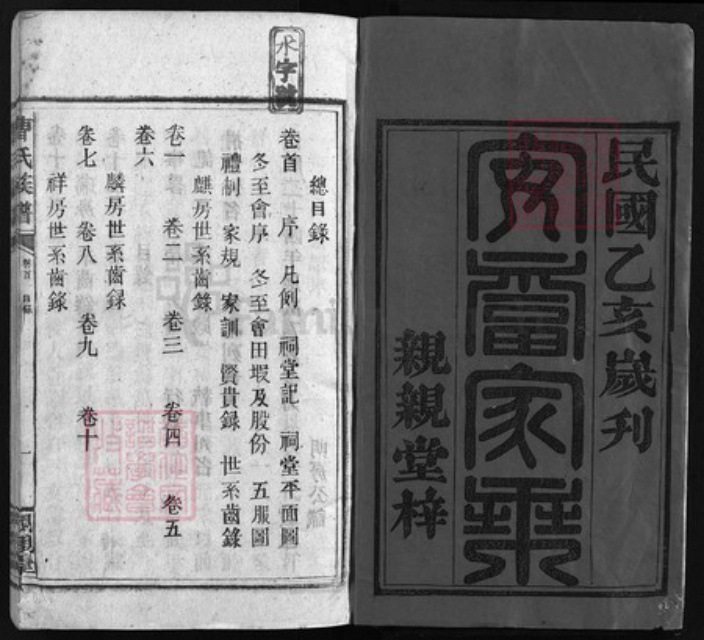 民國乙亥歲刊
親親堂梓
水字號
總目錄
卷首 序 凡例 祠堂記 祠堂平面圖
冬至會序 冬至會田畈及股份 五服圖
禮制 家規 家訓 賢貴録 世系齒錄
麒房世系齒錄
卷一 卷二 卷三 卷四 卷五
麟房世系齒録
卷六
祥房世系齒錄
卷七 卷八 卷九 卷十
曹氏族譜
卷首 目錄
一
親親堂